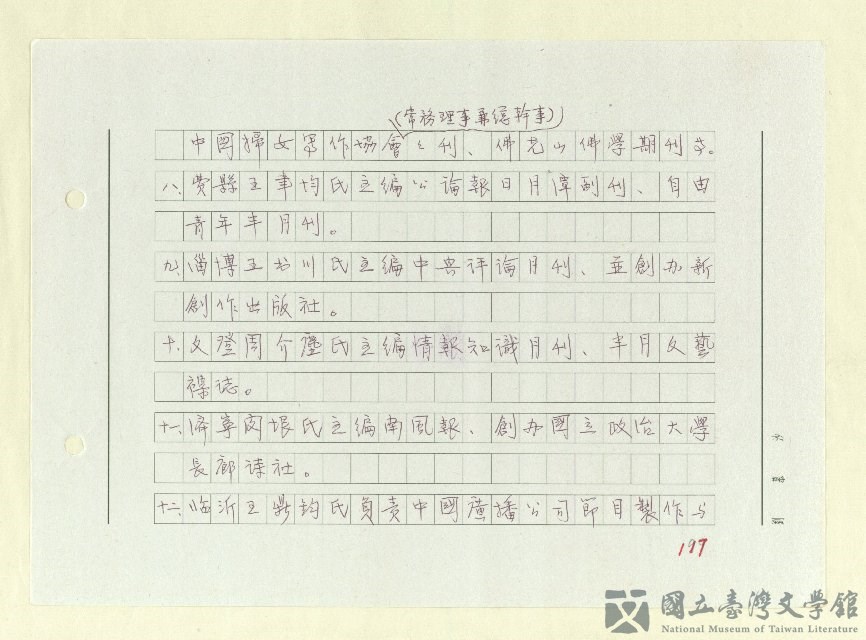 (常務理事兼總幹事)
中國婦女寫作協會会刊、佛光山佛學期刊等。
八、費縣王聿均氏主編公論報日月潭副刊、自由
青年半月刊。
九、淄博王书川氏主編中央评論月刊、並創办新
創作出版社。
十、文登周介塵氏主編情報知識月刊、半月文藝
襍誌。
十一、济寧閔垠氏主編南風報、創办國立政治大學
長廊诗社。
十二、临沂王鼎鈞氏負責中國廣播公司節目製作与
197
國立臺灣文學館
National Museum of Taiwan Literature